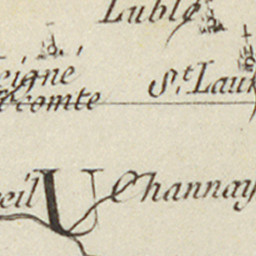 Lublé
eigné
lecomte
St. Laur
eil
U
Channay